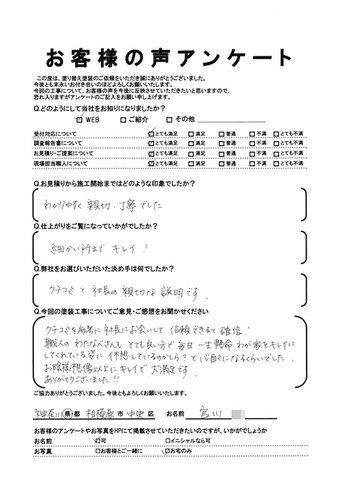 お客様の声アンケート
この度は、塗り替え塗装のご依頼をいただき誠にありがとうございました。
今後とも末永いお付き合いのほどよろしくお願いいたします。
今回の工事について、お客様の声を今後に反映させていただきたいと思いますので、
恐れ入りますがアンケートのご記入をお願い申し上げます。
Q.どのようにして当社をお知りになりましたか？
☑ WEB □ ご紹介 □ その他
受付対応について ☑とても満足 □満足 □普通 □不満 □とても不満
調査報告書について ☑とても満足 □満足 □普通 □不満 □とても不満
お見積り・ご提案について ☑とても満足 □満足 □普通 □不満 □とても不満
現場担当職人について ☑とても満足 □満足 □普通 □不満 □とても不満
Q.お見積りから施工開始まではどのような印象でしたか？
わかりやすく親切、丁寧でした
Q.仕上がりをご覧になっていかがでしたか？
細かい所までキレイ！
Q.弊社をお選びいただいた決め手は何でしたか？
クチコミと社長の親切な説明です。
Q.今回の塗装工事についてご意見・ご感想をお聞かせください
クチコミを参考に社長にお会いして信頼できると確信！
職人のわたなべさんもとても良い方で毎日一生懸命わが家をキレイに
してくれている姿に休憩しているのかしら？と心配になるくらいでした。
お陰様で想像以上にキレイで大満足です
ありがとうございました!!
ご協力ありがとうございました。今後ともよろしくお願いいたします。
神奈川 県 都 相模原 市 中央 区 お名前 宮川
お客様のアンケートやお写真をHPにて掲載させていただきたいのですが、いかがでしょうか
お名前 ☑可 □イニシャルなら可
お写真 □お客様とご一緒に ☑お宅のみ